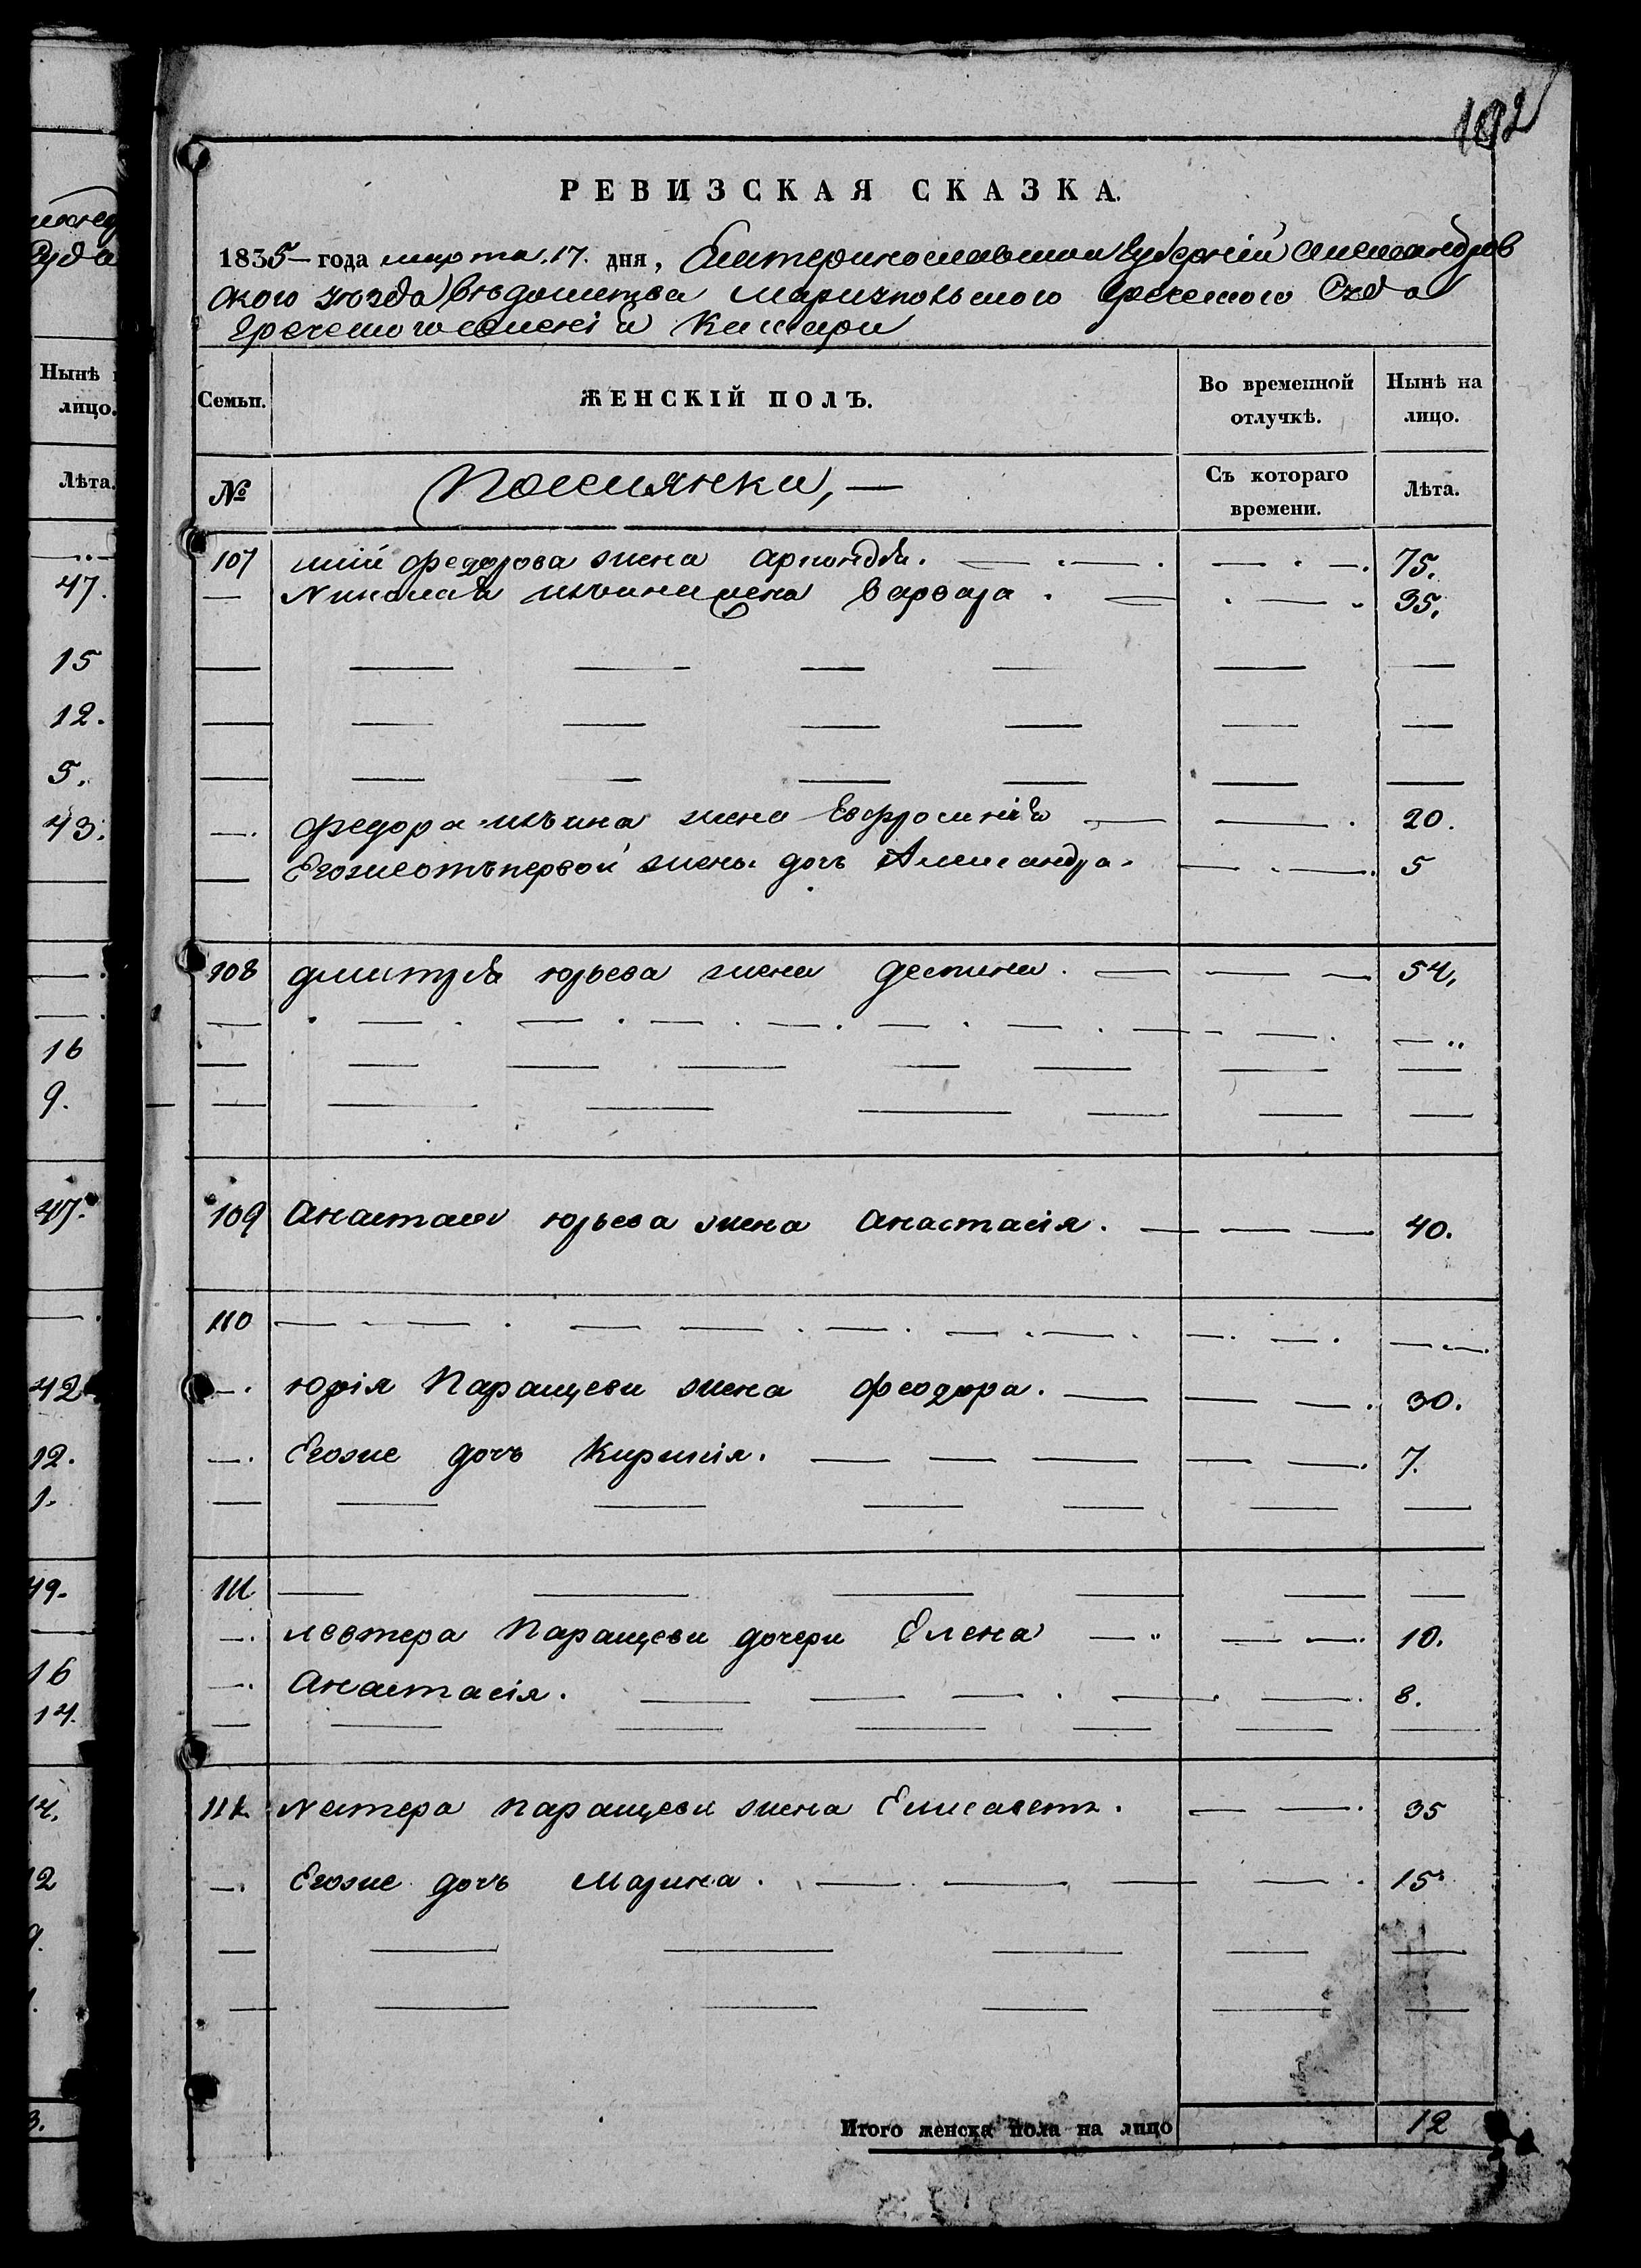 192
РЕВИЗСКАЯ СКАЗКА.
1835 года марта 17. дня, Екатеринославской Губерніи Александров
ского уезда ведомства Мариупольского Греческого Суда
Греческого селенія
Нынѣ
лицо.
Лѣта.
Семьи.
ЖЕНСКІЙ ПОЛЪ.
Во временной
отлучкѣ.
Нынѣ на
лицо.
№
Поселянки,
Съ котораго
времени.
Лѣта.
107 Федорова жена 75.
— Николая Ильина жена Варвара 35.
— Федора Ильина жена Евфросинія 20.
— Егожеотъпервой жены дочъ Александра 5
108 Дмитрія юрьева жена Деспина 54.
109 Анастаса юрьева жена Анастасія. 40.
110
— Юрія Паращеви жена Феодора. 30.
— Егоже дочъ Кирикія. 7.
111
— Левтера Паращеви дочери Елена 10.
— Анастасія. 8.
112 Паращеви жена Елисаветъ. 35
— Егоже дочъ Марина. 15
Итого женска пола на лицо 12
47.
15
12.
5.
43.
16
9.
47.
42
12.
1.
49.
16
14.